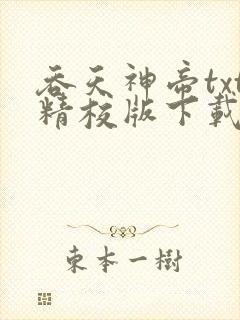 吞天神帝txt
精校版下載
東本一樹